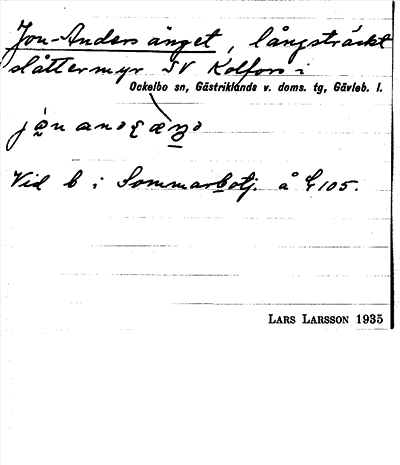 Jon-Anders änget, långsträckt
slåttermyr SV Kolfors i
Ockelbo sn, Gästriklands v. doms. tg, Gävleb. l.
Vid b i Sommarbotj. å G 105.
LARS LARSSON 1935